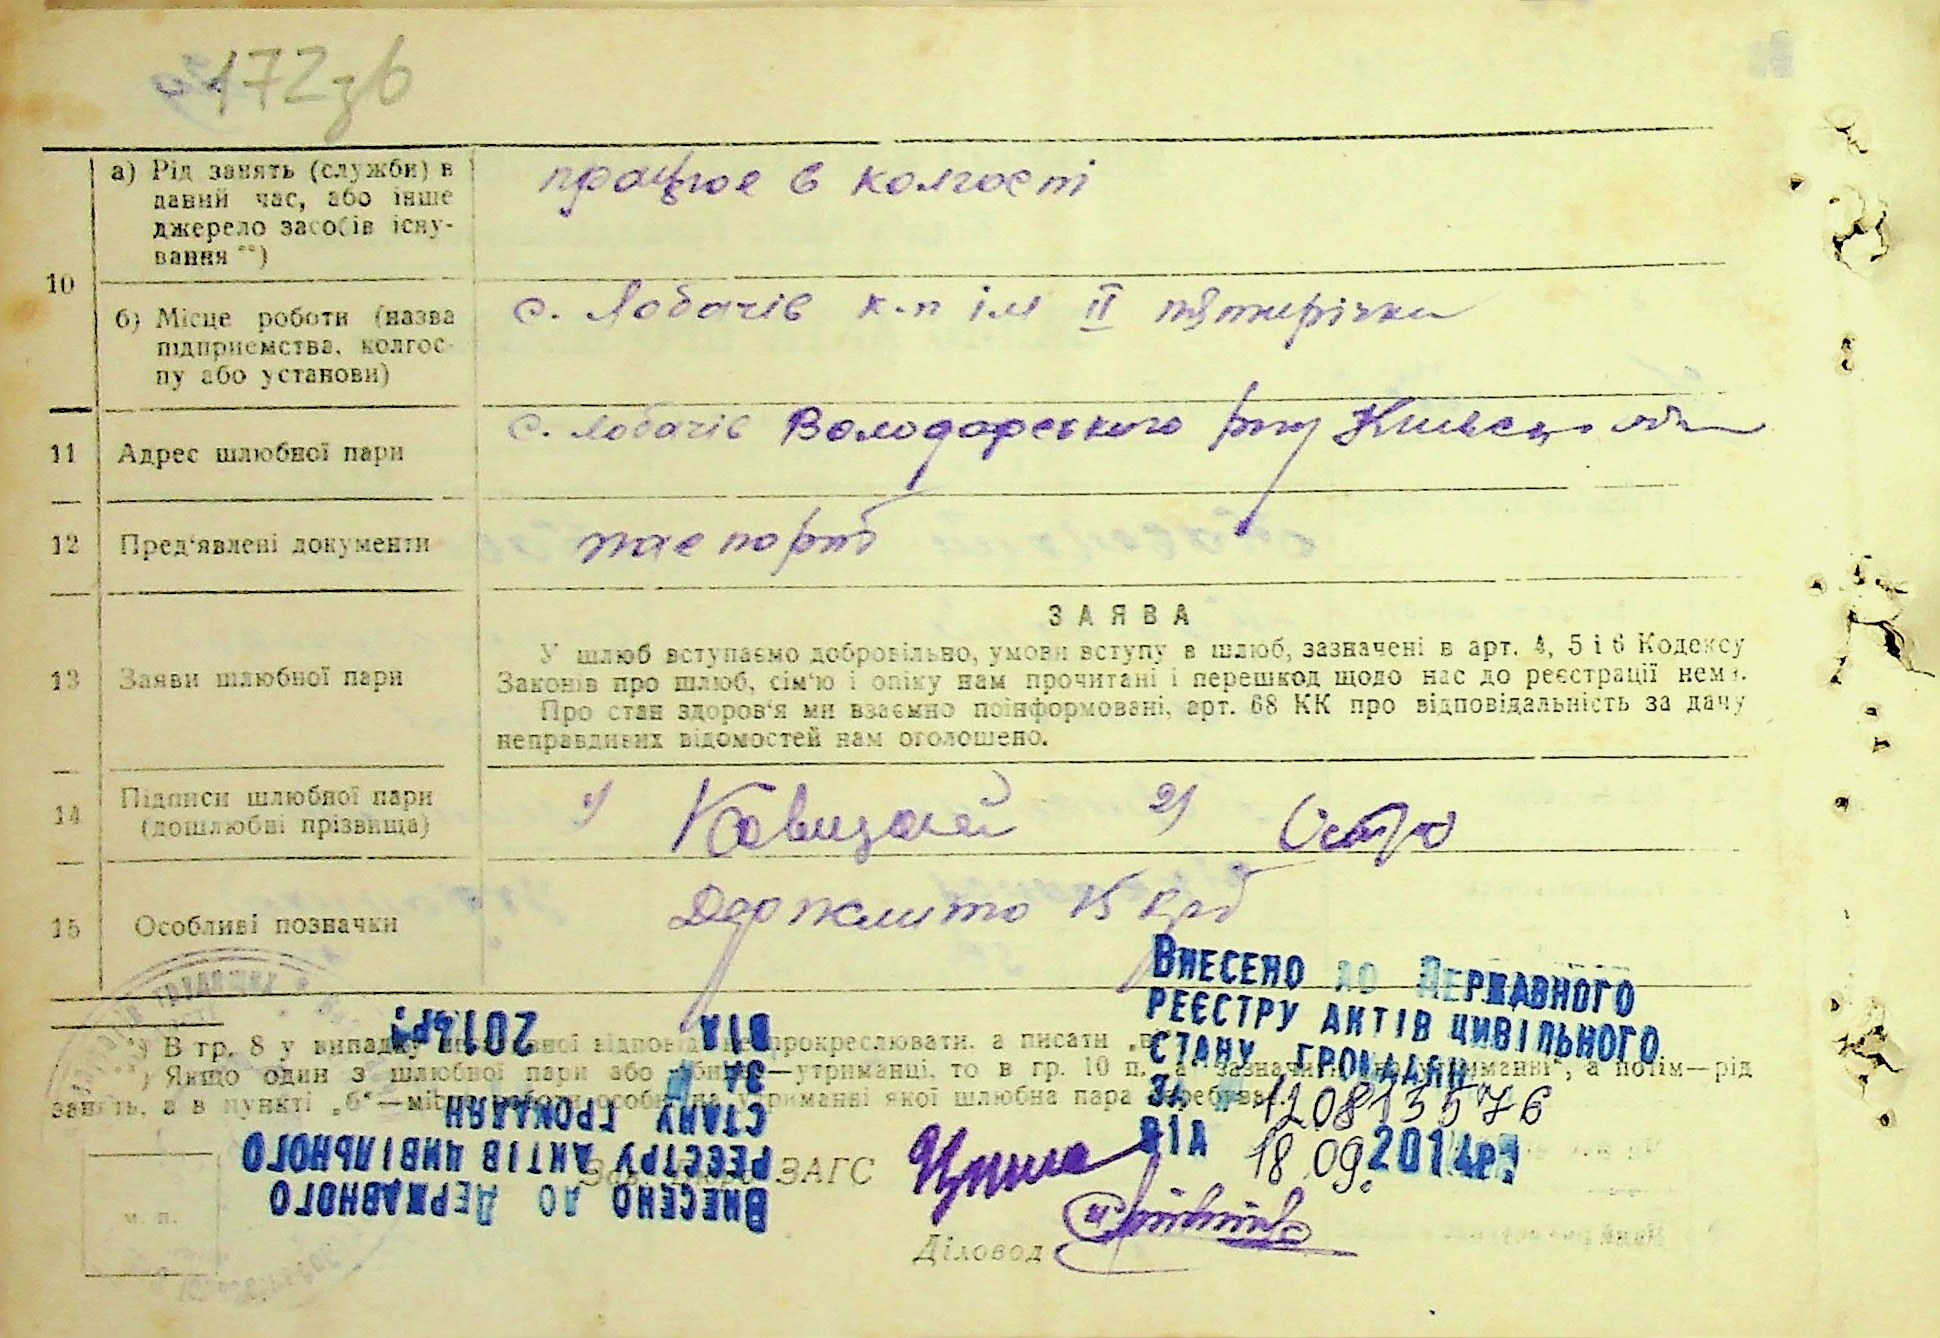 172зв
а) Рід занять (служби) в
даний час, або інше
джерело засобів існу-
вання **)
працює в колгості
10
б) Місце роботи (назва
підприємства, колгос-
пу або установи)
с. Лобачів к-п ім ІІ пятирічки
11 Адрес шлюбної пари
с. Лобачів Володарського р-ну Київсц обл
12 Пред'явлені документи
паспорт
ЗАЯВА
13 Заяви шлюбної пари
У шлюб вступаємо добровільно, умови вступу в шлюб, зазначені в арт. 4, 5 і 6 Кодексу
Законів про шлюб, сім'ю і опіку нам прочитані і перешкод щодо нас до реєстрації нема.
Про стан здоров'я ми взаємно поінформовані, арт. 68 КК про відповідальність за дачу
неправдивих відомостей нам оголошено.
14 Підписи шлюбної пари
(дошлюбні прізвища)
1) 2)
15 Особливі позначки
Держмито 15 крб
*) В гр. 8 у випадку відповіді не прокреслювати, а писати
**) Якщо один з шлюбної пари або — утриманці, то в гр. 10 п. „а" зазначити утриманні", а потім—рід
занять, а в пункті „б"—місце роботи особи на утриманні якої шлюбна пара перебуває.
Внесено до Державного
реєстру актів цивільного
стану громадян
за № 120813576
від 18.09.2014р.
Внесено до Державного
реєстру актів цивільного
стану громадян
за №
від 201 р.
Зав. Бюро ЗАГС
м. п.
Діловод